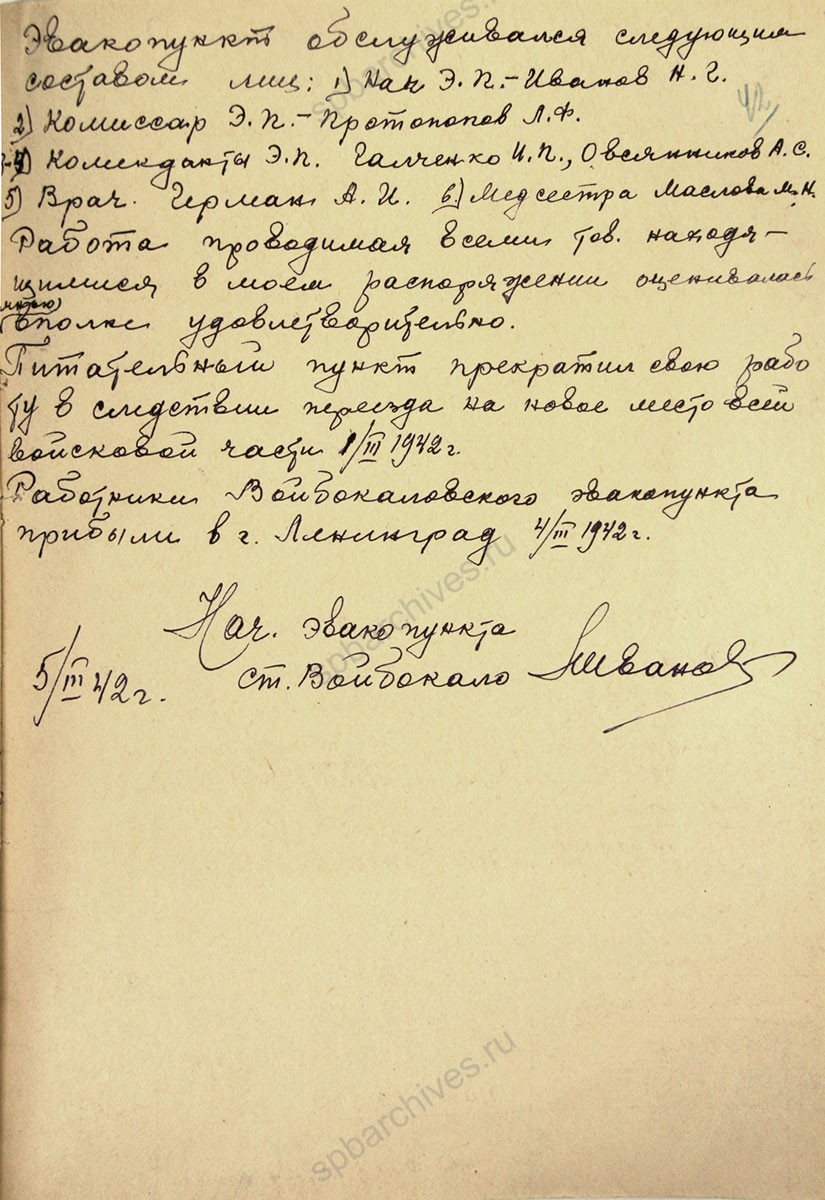 Эвакопункт обслуживался следующим
составом лиц: 1) Нач Э.П. - Иванов Н.Г.
42
2) Комиссар Э.П. - Протопопов Л.Ф.
3-4) Коменданты Э.П. Галченко И.П., Овсянников А.С.
5) Врач. Герман А.И. 6) Медсестра Маслова М.Н.
Работа проводимая всеми тов. находя-
щимися в моем распоряжении оценивалась
(мною)
вполне удовлетворительно.
Питательный пункт прекратил свою рабо
ту в следствии переезда на новое место всей
войсковой части 1/III 1942 г.
Работники Войбокаловского эвакопункта
прибыли в г. Ленинград 4/III 1942 г.
Нач. эвакопункта
ст. Войбокало Иванов
5/III 42 г.
spbarchives.ru
spbarchives.ru
spbarchives.ru